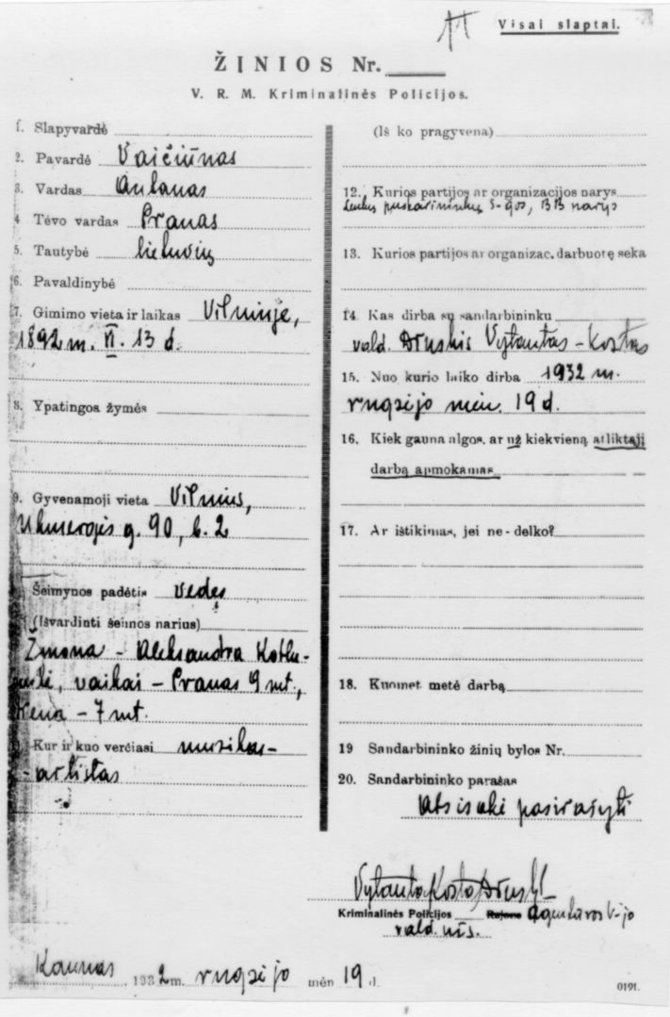 Visai slaptai.
ŽINIOS Nr.
V. R. M. Kriminalinės Policijos.
1. Slapyvardė
2. Pavardė Vaičiūnas
3. Vardas Antanas
4 Tėvo vardas Pranas
5. Tautybė lietuvių
6. Pavaldinybė
7. Gimimo vieta ir laikas Vilniuje,
1892 m. VI. 13 d.
8. Ypatingos žymės
9. Gyvenamoji vieta Vilnius,
Ukmergės g. 90, b. 2
Šeimynos padėtis vedęs
(Išvardinti šeimos narius)
Žmona - Aleksandra
vaikai - Pranas 9 mt.,
Irena - 7 mt.
Kur ir kuo verčiasi muzikas-
-artistas
(Iš ko pragyvena)
12. Kurios partijos ar organizacijos narys
Lenkų puskarininkių S-gos, BB narys
13. Kurios partijos ar organizac. darbuotę seka
14 Kas dirba su sandarbininku
vald. Druskis Vytautas-Kostas
15. Nuo kurio laiko dirba 1932 m.
rugsėjo mėn. 19 d.
16. Kiek gauna algos, ar už kiekvieną atliktąjį
darbą apmokamas
17. Ar ištikimas, jei ne-delko?
18. Kuomet metė darbą
19 Sandarbininko žinių bylos Nr.
20. Sandarbininko parašas
Atsisakė pasirašyti
Kriminalinės Policijos Rajono Agentūros V-jo
vald. nis.
Kaunas 1932 m. rugsėjo mėn 19 d.
0191.